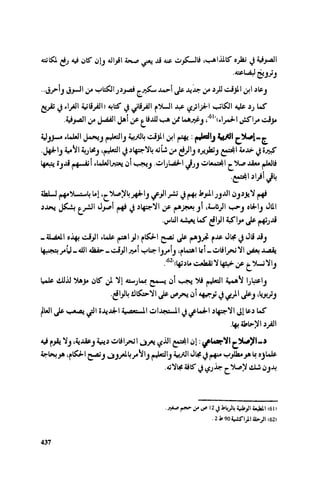 الصوفية في نظره كالمذاهب، فالسكوت عنه قد يعني صحة أقواله وإن كان فيه رفع لمكانته
وترويج لبضاعته.
وعاد ابن المؤقت للرد من جديد على أحمد سكيرج فصودر الكتاب من السوق وأحرق..
كما رد عليه الكاتب الجزائري عبد السلام الفرقاني في كتابه «الفرقانية الغراء في تقريع
مؤقت مراكش الحمراء»(61)، وغيرهما ممن هب للدفاع عن أهل الفضل من الصوفية.
ج ـ إصلاح التربية والتعليم : يهتم ابن المؤقت بالتربية والتعليم ويحمل العلماء مسؤولية
كبيرة في خدمة المجتمع وتطويره والرفع من شأنه بالاجتهاد في التعليم، ومحاربة الأمية والجهل.
فالعلم معقد صلاح المجتمعات ورقي الحضارات. ويجب أن يعتبر العلماء أنفسهم قدوة يتبعها
باقي أفراد المجتمع.
فهم لا يؤدون الدور المنوط بهم في نشر الوعي والجهر بالإصلاح، إما باستسلامهم لسلطة
المال والجاه وحب الرئاسة، أو بعجزهم عن الاجتهاد في فهم أصول الشرع بشكل يحدد
قدرتهم على مواكبة الواقع كما يعيشه الناس.
وقد قال في مجال عدم تجرؤهم على نصح الحكام «لو اهتم علماء الوقت بهذه المعضلة ـ
يقصد بعض الانحرافات ـ أيما اهتمام، وأمروا جناب أمير الوقت ـ حفظه الله ـ ليأمر بتجنبها
والانسلاخ عن خبثها لانقطعت مادتها»(62).
واعتبارا لأهمية التعليم فلا يجب أن يسمح بممارسته إلا لمن كان مؤهلا لذلك علميا
وتربويا، وعلى المربي في توجيهه أن يحرص على الاحتكاك بالواقع.
كما دعا إلى الاجتهاد الجماعي في المستجدات المستعصية الجديدة التي يصعب على العالم
الفرد الإحاطة بها.
د ـ الإصلاح الاجتماعي : إن المجتمع الذي يعرف انحرافات دينية وعقدية، ولا يقوم فيه
علماؤه بما هو مطلوب منهم في مجال التربية والتعليم والأمر بالمعروف ونصح الحكام، هو بحاجة
بدون شك لإصلاح جذري في كافة مجالاته.
(61) المطبعة الوطنية بالرباط في 12 ص من حجم صغير.
(62) الرحلة المراكشية 90 ط 2.
437